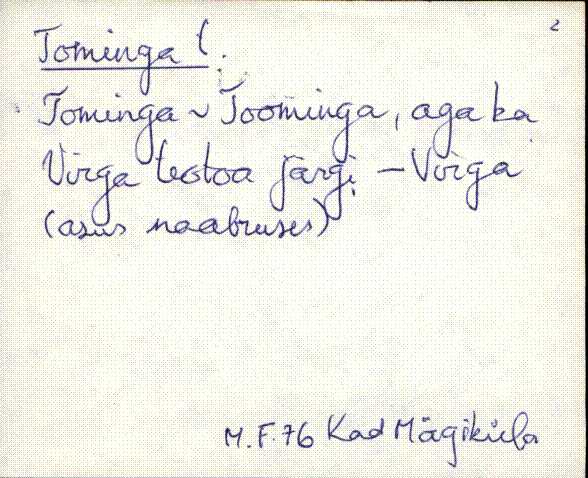 2
Tominga t.
Tominga ~ Toominga, aga ka
Virga teotoa järgi – Virga
(asus naabruses)
M.F.76 Kad Mägiküla